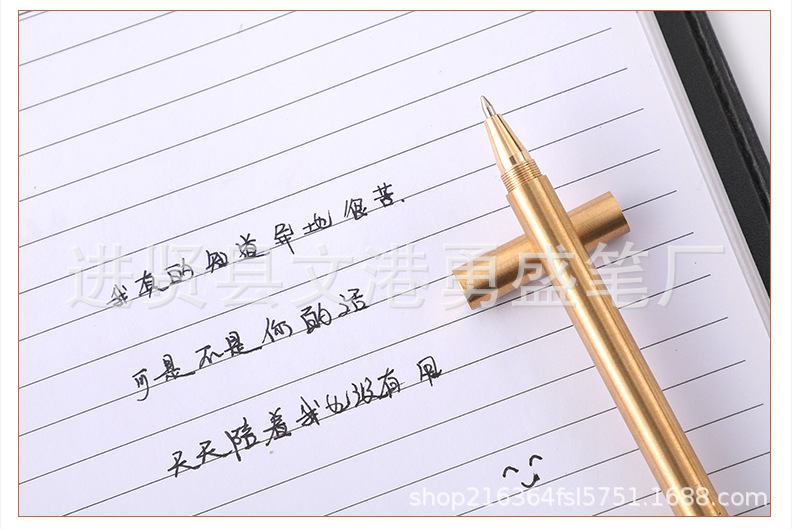 我有的知道异地很苦.
进贤县文港勇盛笔厂
可是不是你的话
天天陪着我也没有用
shop216364fsl5751.1688.com